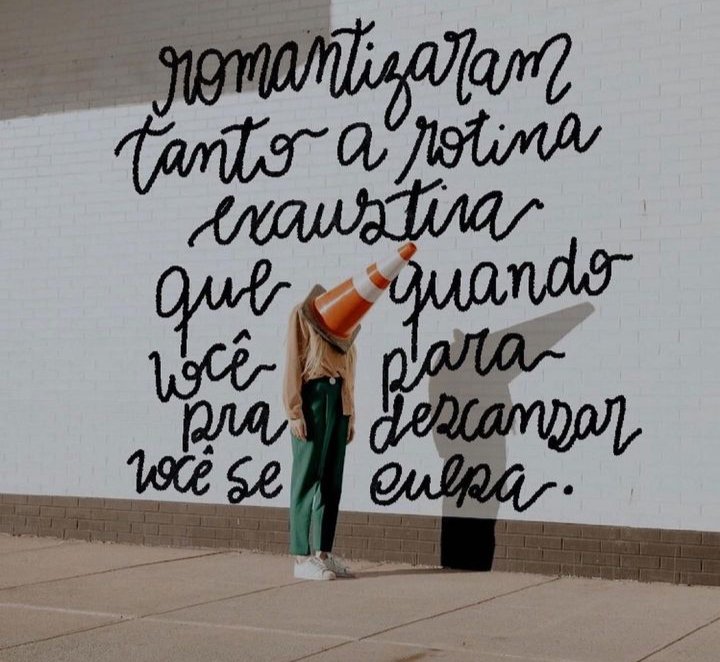 romantizaram
tanto a rotina
exaustiva
que quando
você para
pra descansar
você se culpa.